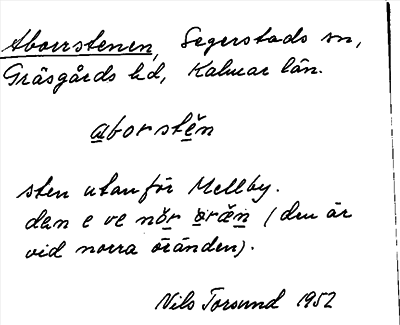 Aborrstenen, Segerstads sn,
Gräsgårds hd, Kalmar län.
aborstěn
sten utanför Mellby.
dan e ve nǒr öræ̌n (den är
vid norra öränden).
Nils Torsund 1952